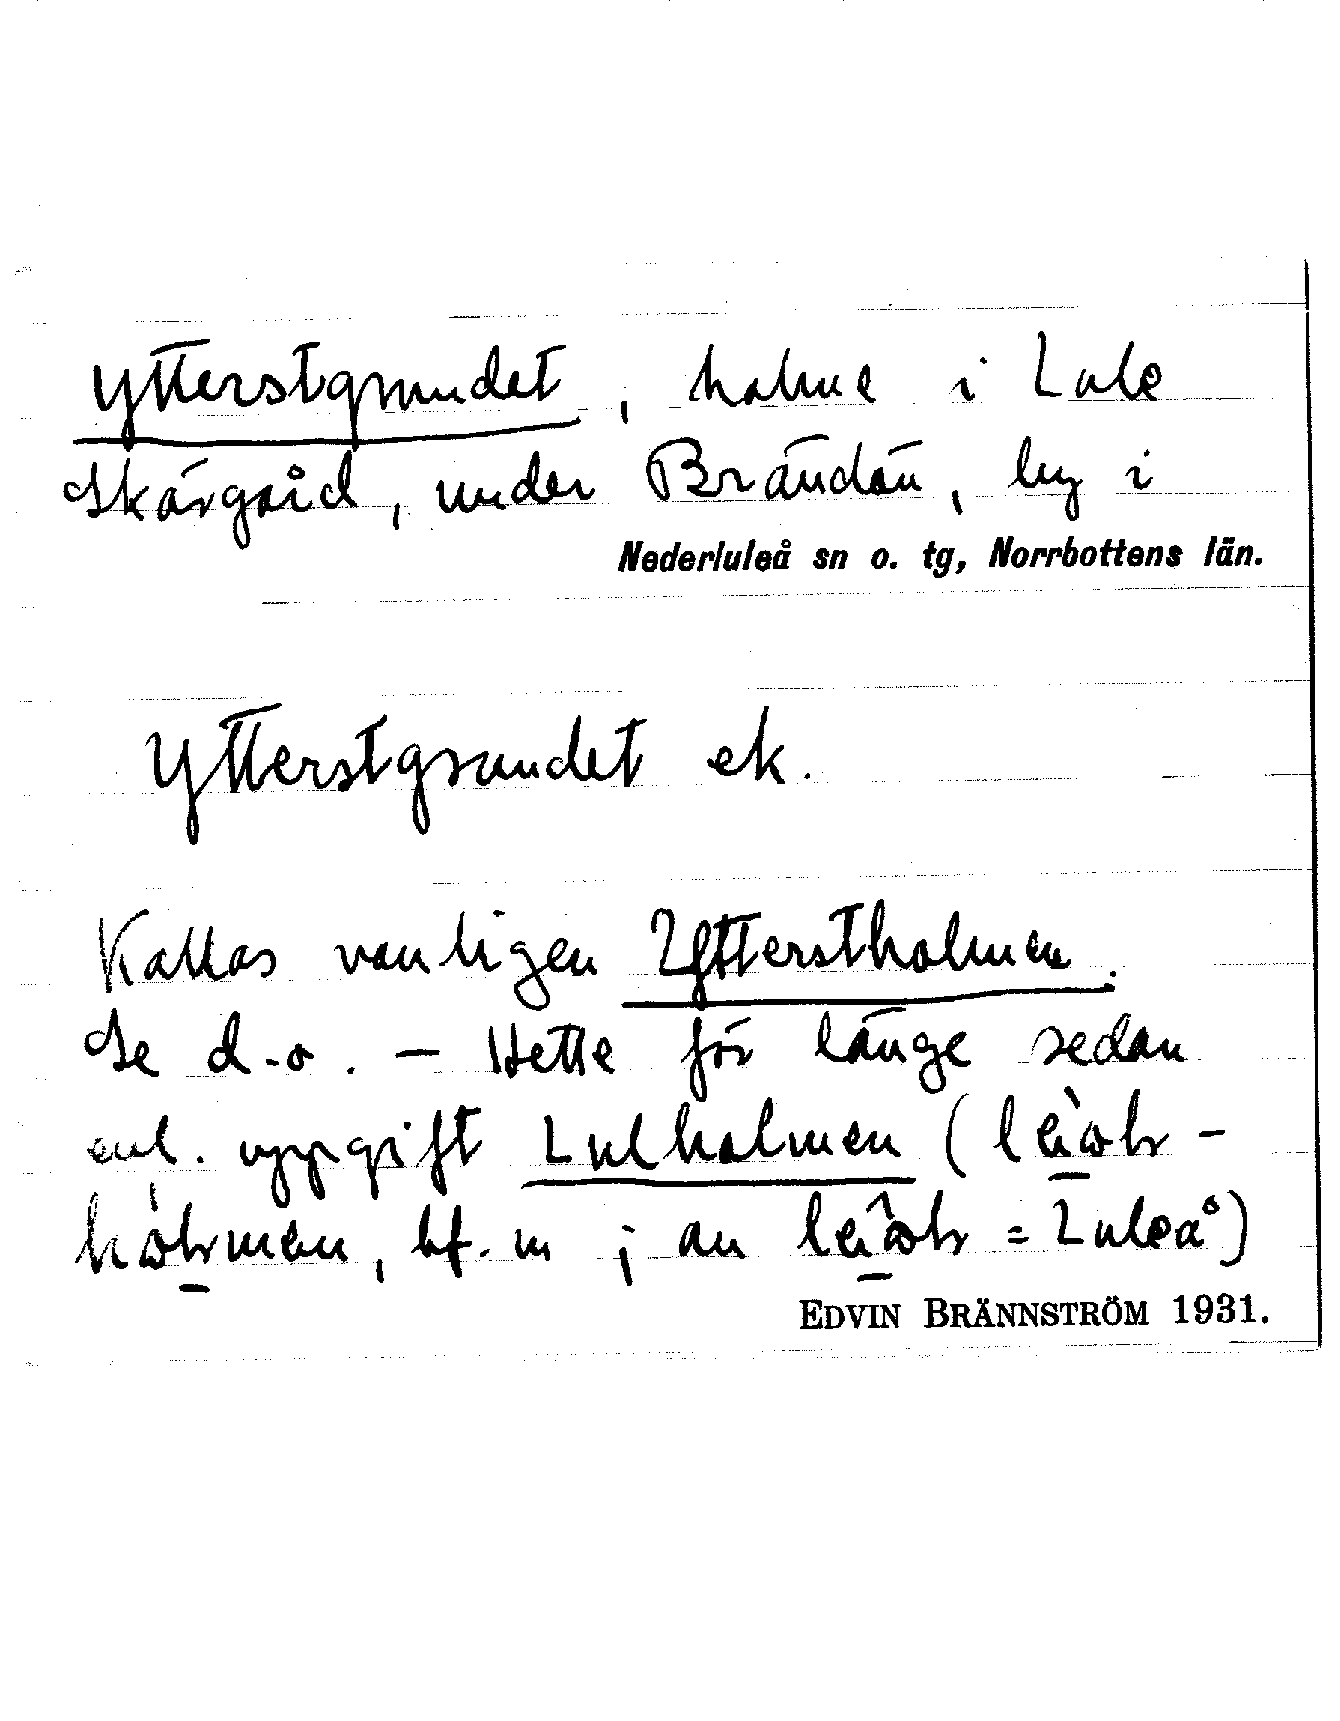 Ytterstgrundet, holme i Lule
skärgård, under Brändön, by i
Nederluleå sn o. tg, Norrbottens län.
Ytterstgrundet ek.
Kallas vanligen Ytterstholmen.
Se d.o. – Hette för länge sedan
enl. uppgift Lulholmen (
, bf. m ; an = Luleå)
EDVIN BRÄNNSTRÖM 1931.